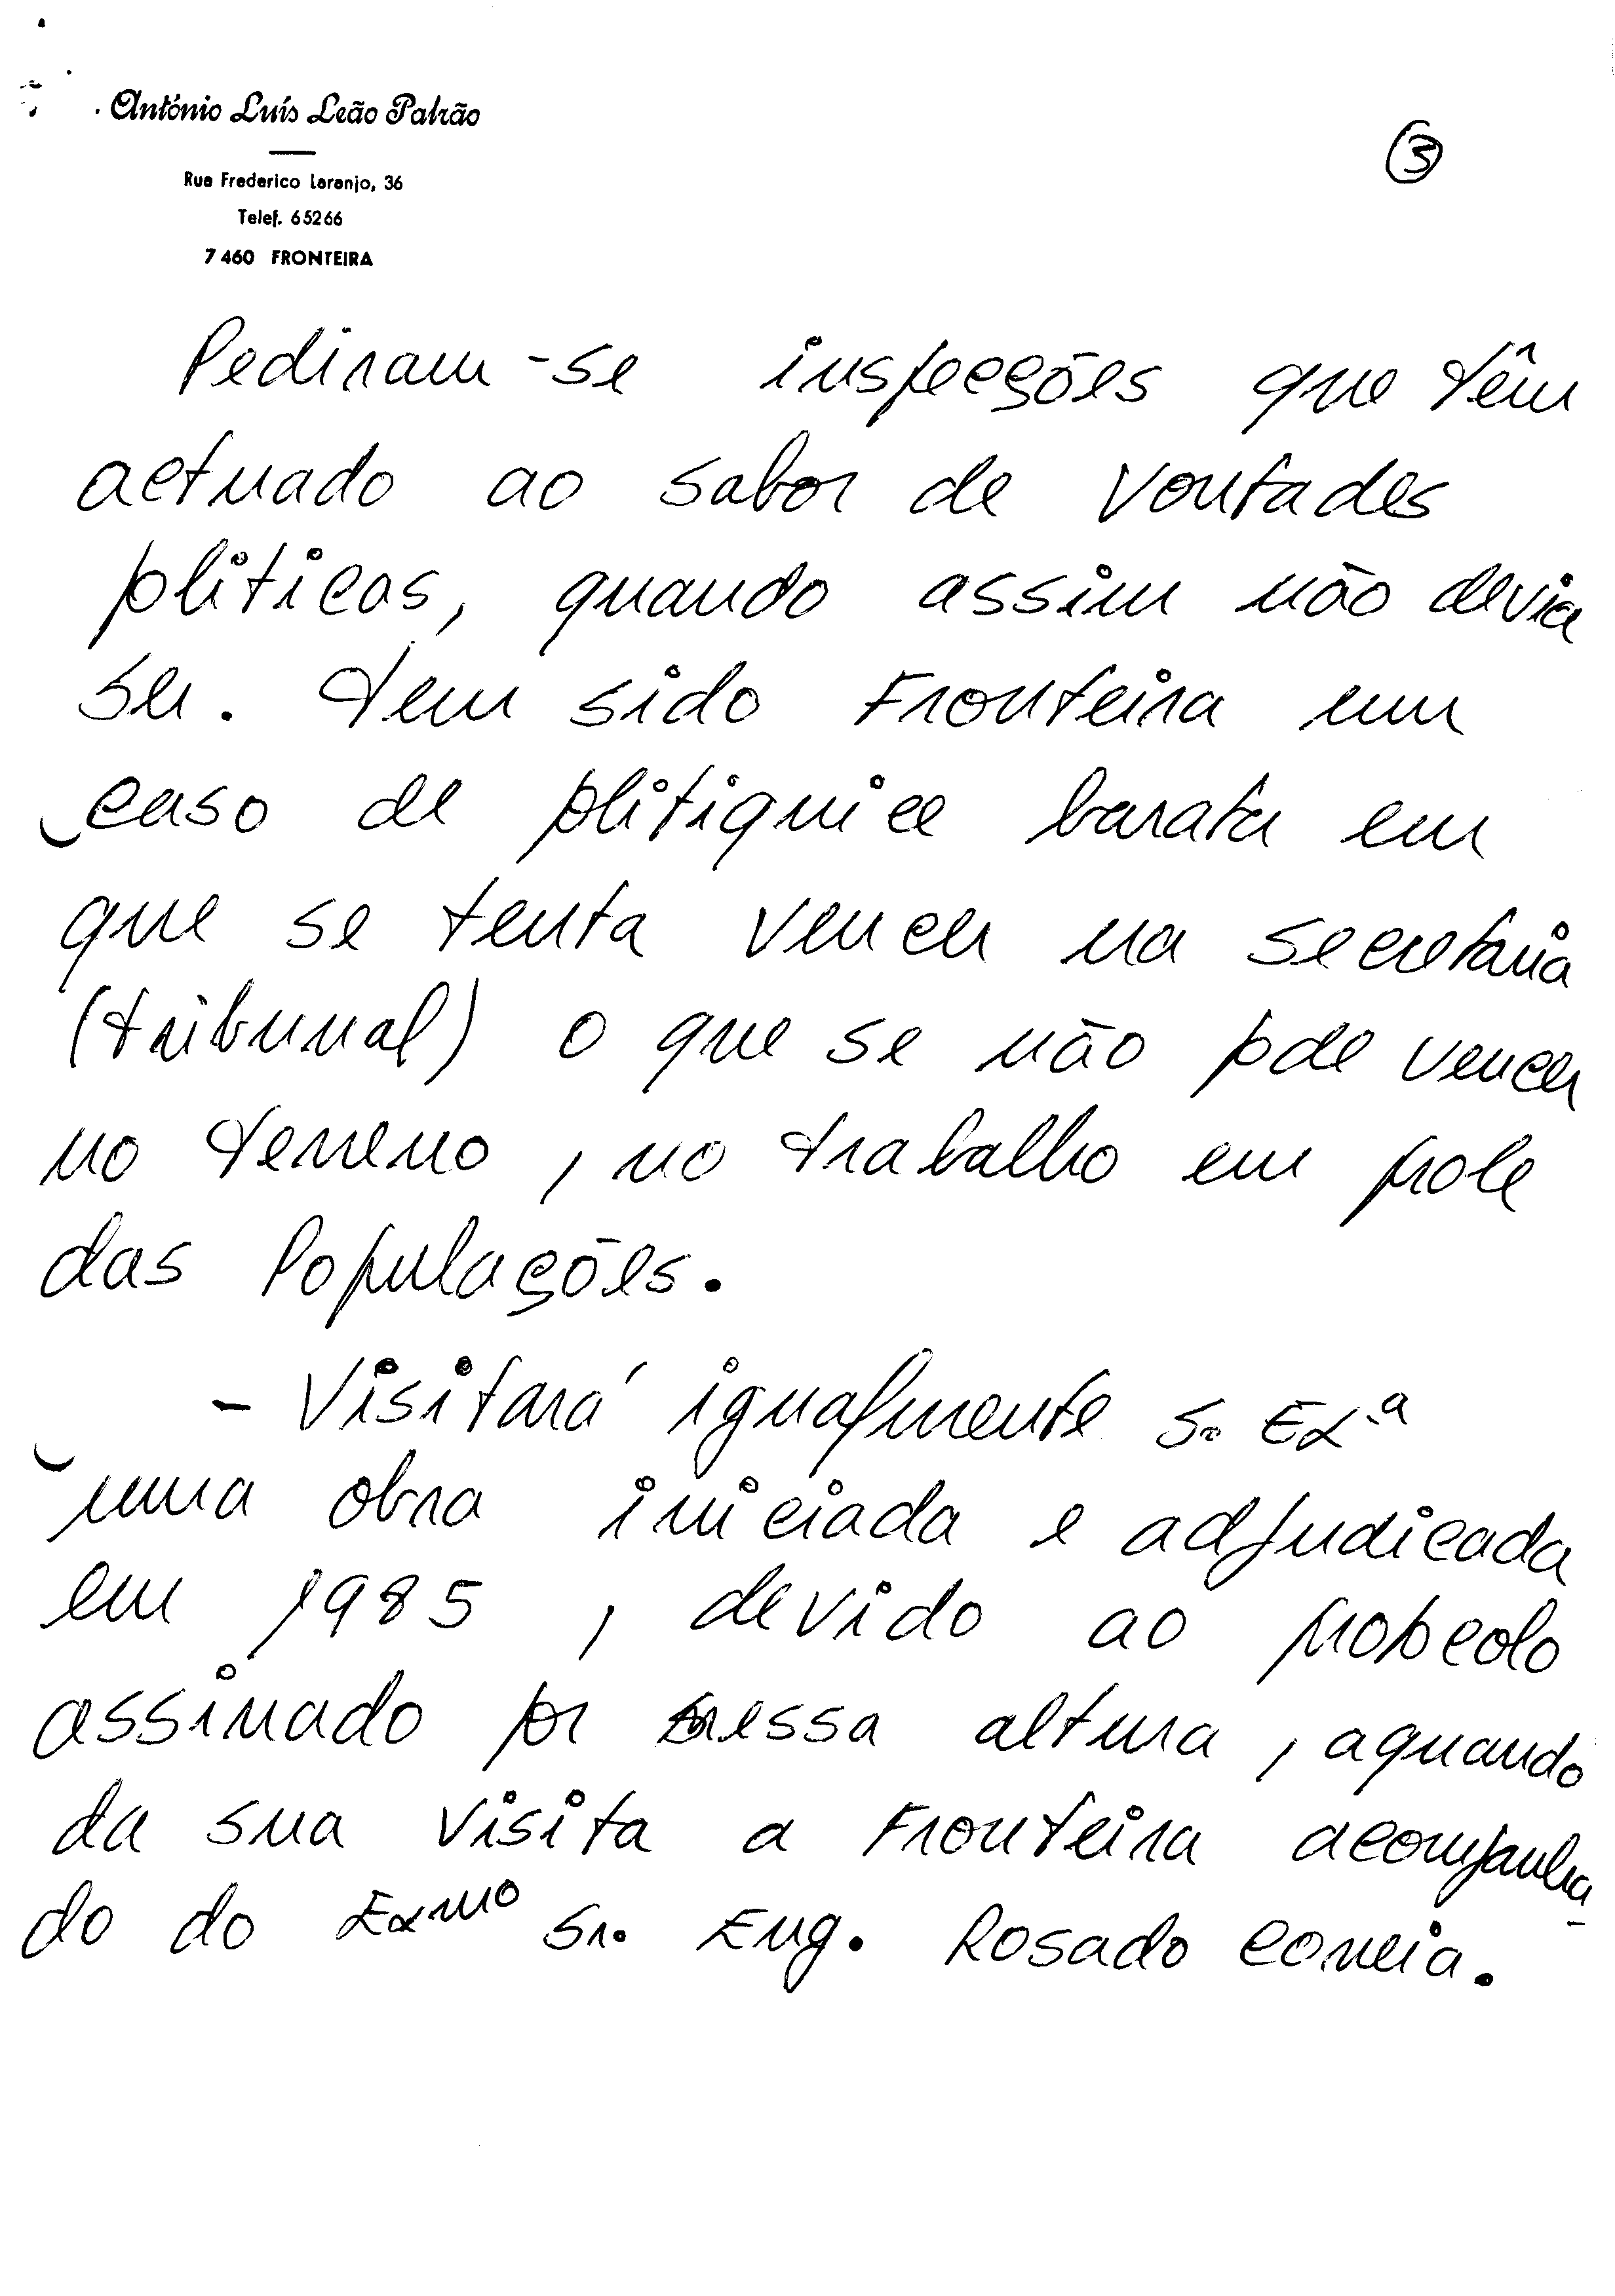 António Luís Leão Patrão
Rua Frederico Laranjo, 36
Telef. 65266
7460 FRONTEIRA
3
Pediram-se inspecções que têm
actuado ao sabor de vontades
politicas, quando assim não devia
ser. Tem sido Fronteira um
caso de politiquice barata em
que se tenta vencer na secretaria
(tribunal) o que se não pode vencer
no terreno, no trabalho em prole
das Populações.
- Visitará igualmente S. Ex.a
uma obra iniciada e adjudicada
em 1985, devido ao protocolo
assinado por nessa altura, aquando
da sua visita a Fronteira acompanha-
do do Exmo Sr. Eng. Rosado Correia.